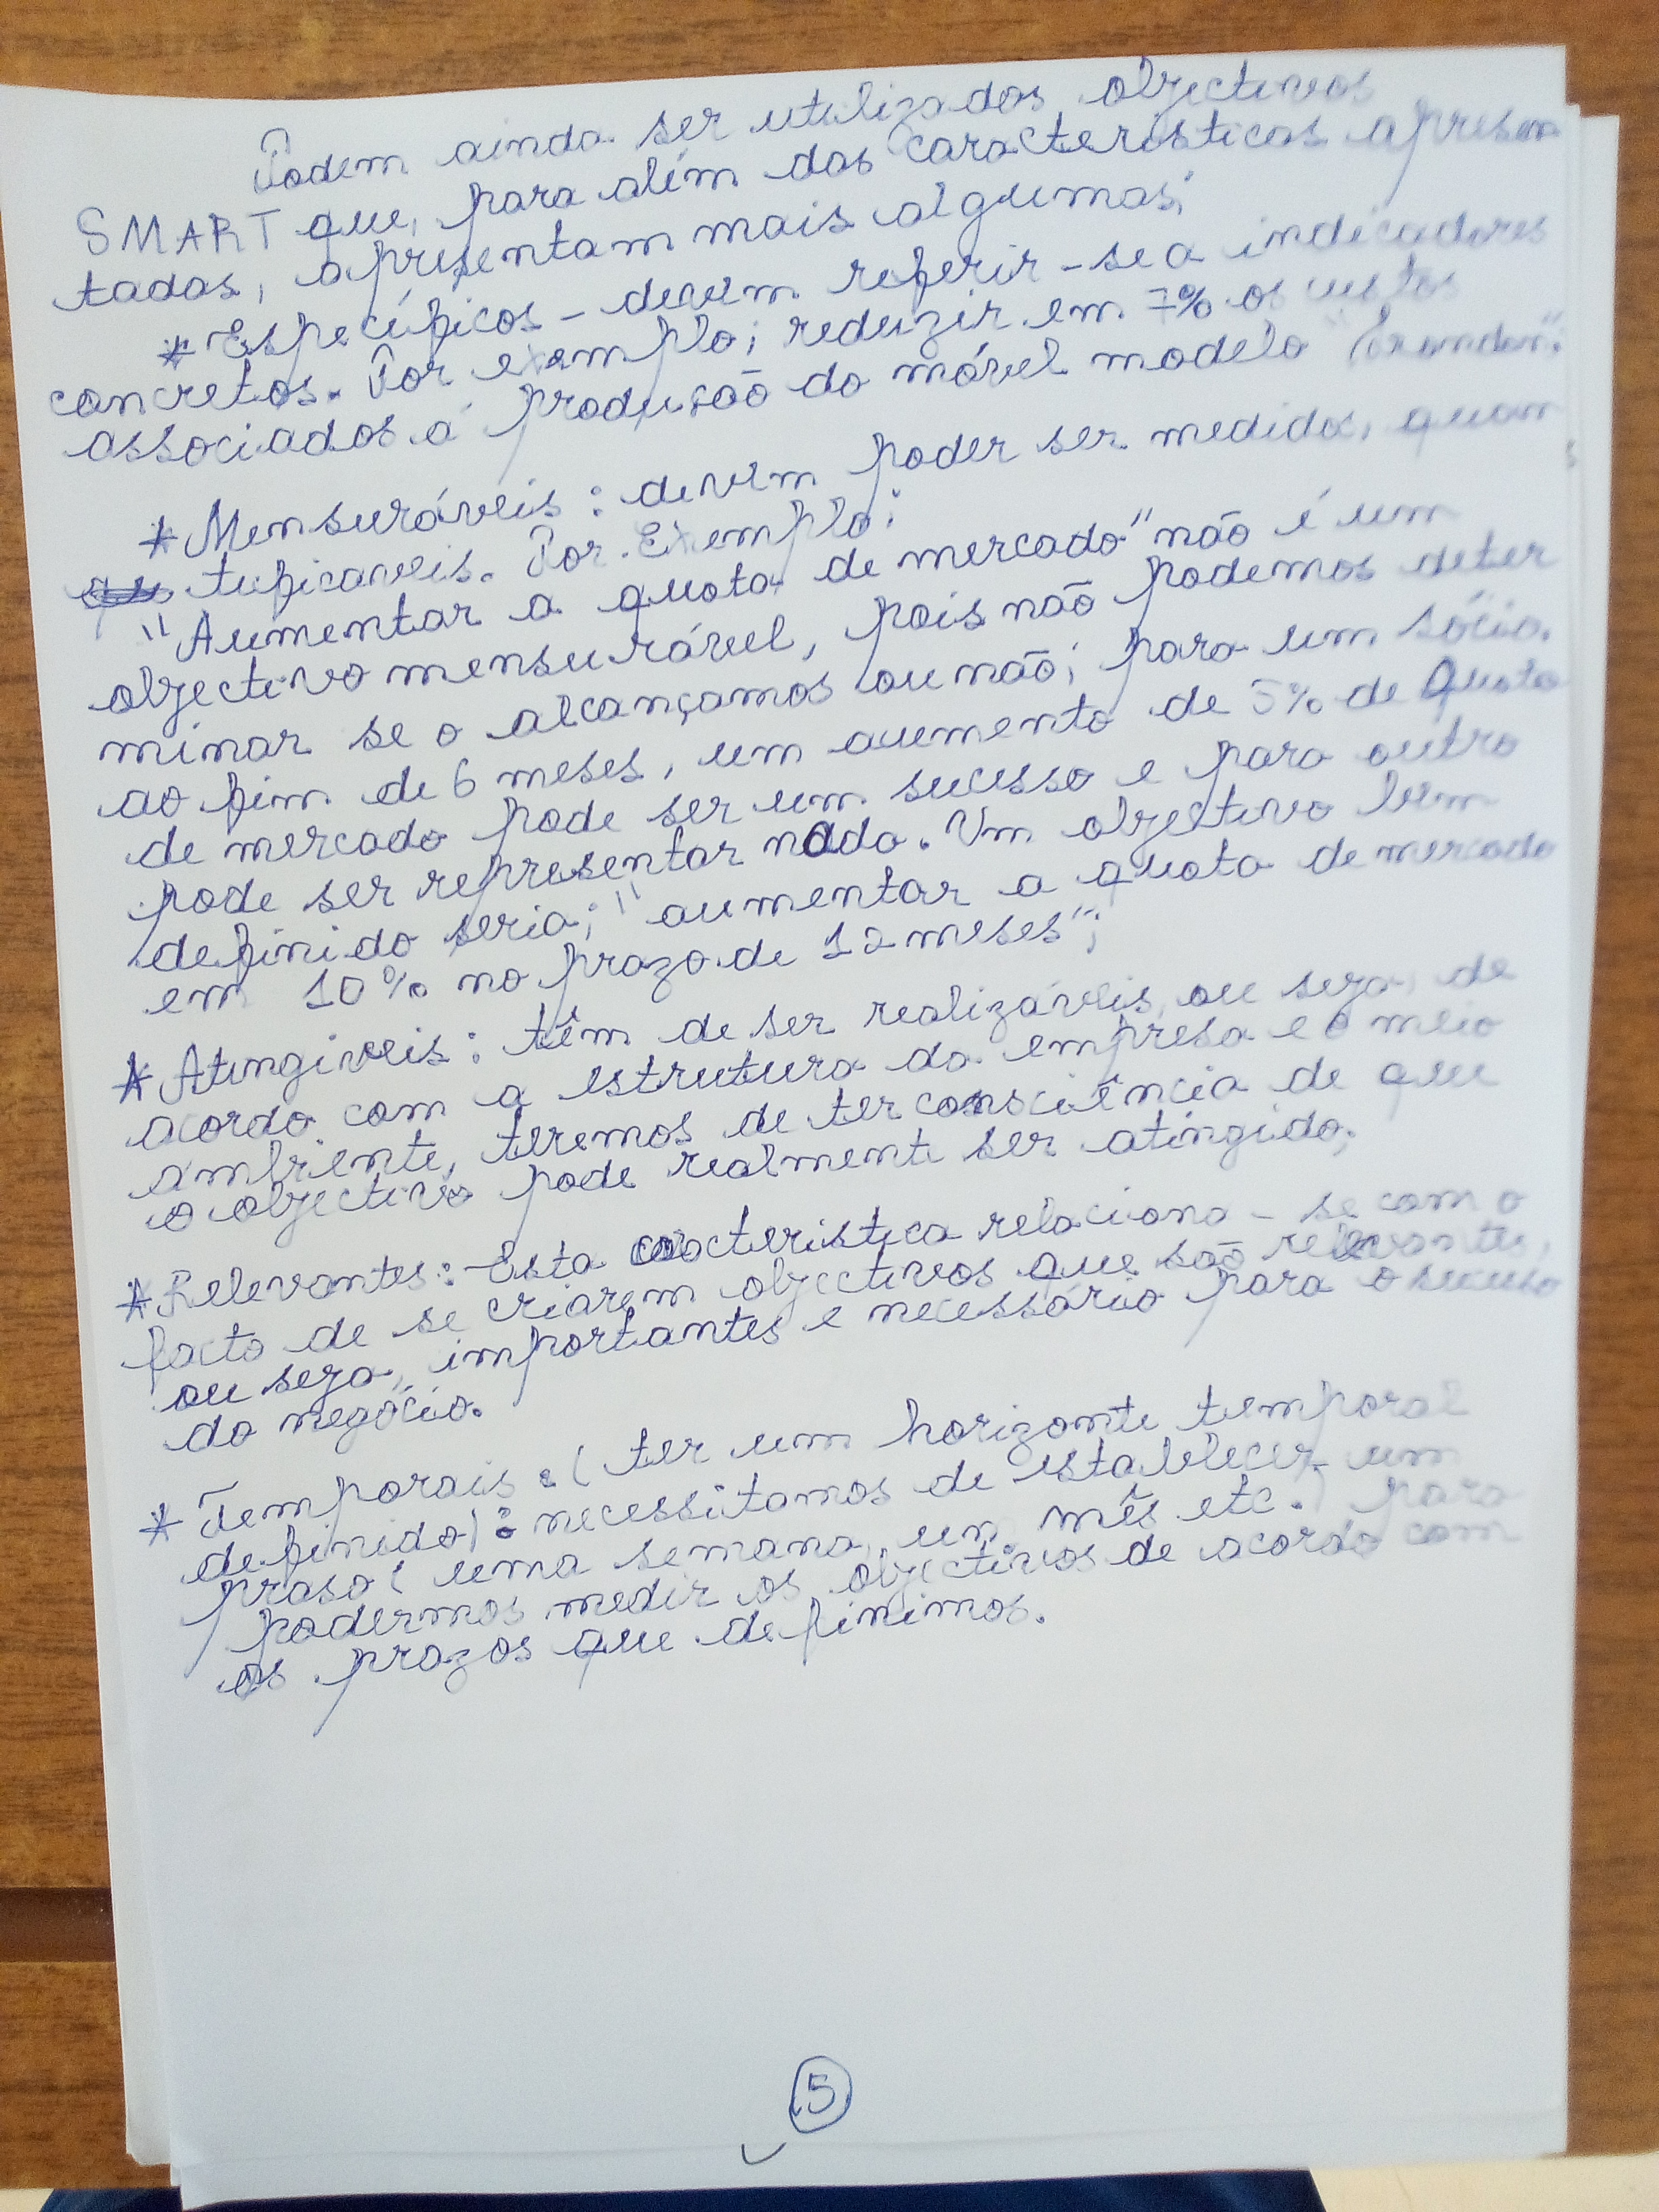 Podem ainda ser utilizados objectivos
SMART que, para além das características apresen
tadas, apresentam mais algumas;
* Específicos - devem referir-se a indicadores
concretos. Por exemplo; reduzir em 7% os custos
associados á produção do móvel modelo
* Mensuráveis: devem poder ser medidos, quan
tificaveis. Por Exemplo:
"Aumentar a quota de mercado" não é um
objectivo mensurável, pois não podemos deter
minar se o alcançamos ou não; para um sócio.
ao fim de 6 meses, um aumento de 5% de Quota
de mercado pode ser um sucesso e para outro
pode ser representar nada. Um objectivo bem
definido seria; "aumentar a quota de mercado
em 10% no prazo de 12 meses";
* Atingiveis: têm de ser realizáveis, ou seja, de
acordo com a estrutura da empresa e o meio
ambiente, teremos de ter consciência de que
o objectivo pode realmente ser atingido;
* Relevantes: Esta caracteristica relaciona-se com o
facto de se criarem objectivos que são relevantes,
ou seja, importantes e necessário para o sucesso
do negócio.
* Temporais: (ter um horizonte temporal
definido): necessitamos de establecer um
praso (uma semana, um mês etc.) para
podermos medir os objectivos de acordo com
os prazos que definimos.
5